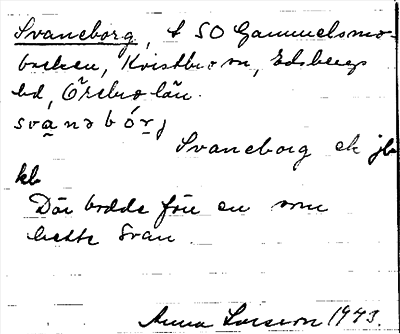 Svaneborg, t SO Gammelsmo-
backen, Kvistbro sn, Edsbergs
hd, Örebro län.
svanəbórj
Svaneborg ek jb
kb
Där bodde förr en som
hette Svan.
Anna Larsson 1943.